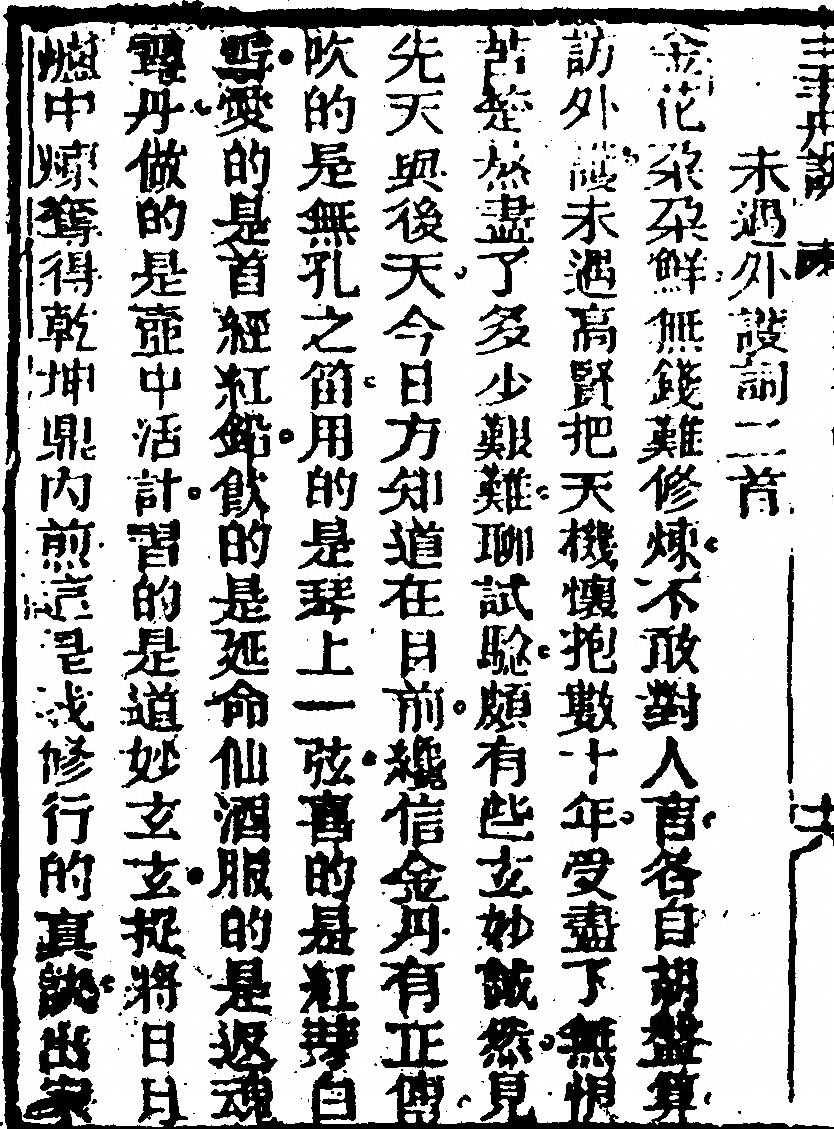 未遇外護詞二首
金花朶朶鮮無錢難修煉不敢對人言各自胡盤算
訪外護未遇高賢把天機懷抱數十年受盡了無恨
苦楚熬盡了多少艱難聊試驗頗有些玄妙誠然見
先天與後天今日方知道在目前纔信金丹有正傳
吹的是無孔之笛用的是琴上一弦喜的是紅孽白
雪愛的是首經紅鉛飲的是延命仙酒服的是返魂
靈丹做的是壺中活計習的是道妙玄玄捉將日月
爐中煉奪得乾坤鼎內煎這是我修行的真訣出家